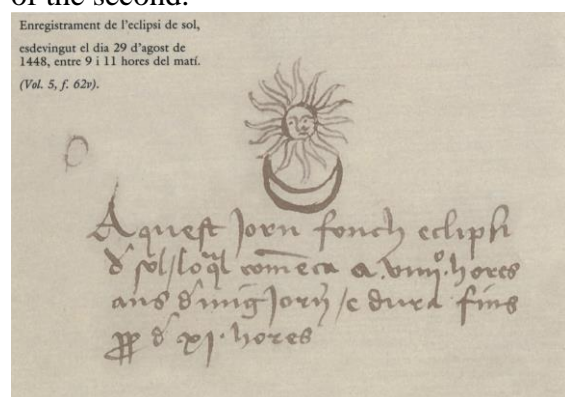 of the second.
Enregistrament de l'eclipsi de sol,
esdevingut el dia 29 d'agost de
1448, entre 9 i 11 hores del matí.
(Vol. 5, f. 62v).
Aquest jorn fonch eclipsi
d sol / loql comẽca a .viiijº. hores
ans d mig jorn / e dura fins
d xj. hores